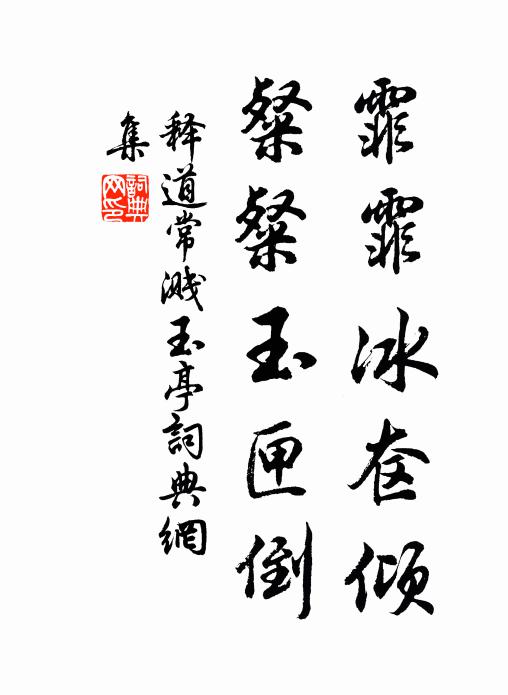 霏霏冰奁倾
粲粲玉匣倒
释道常溅玉亭詞典網
集
詞典
网印